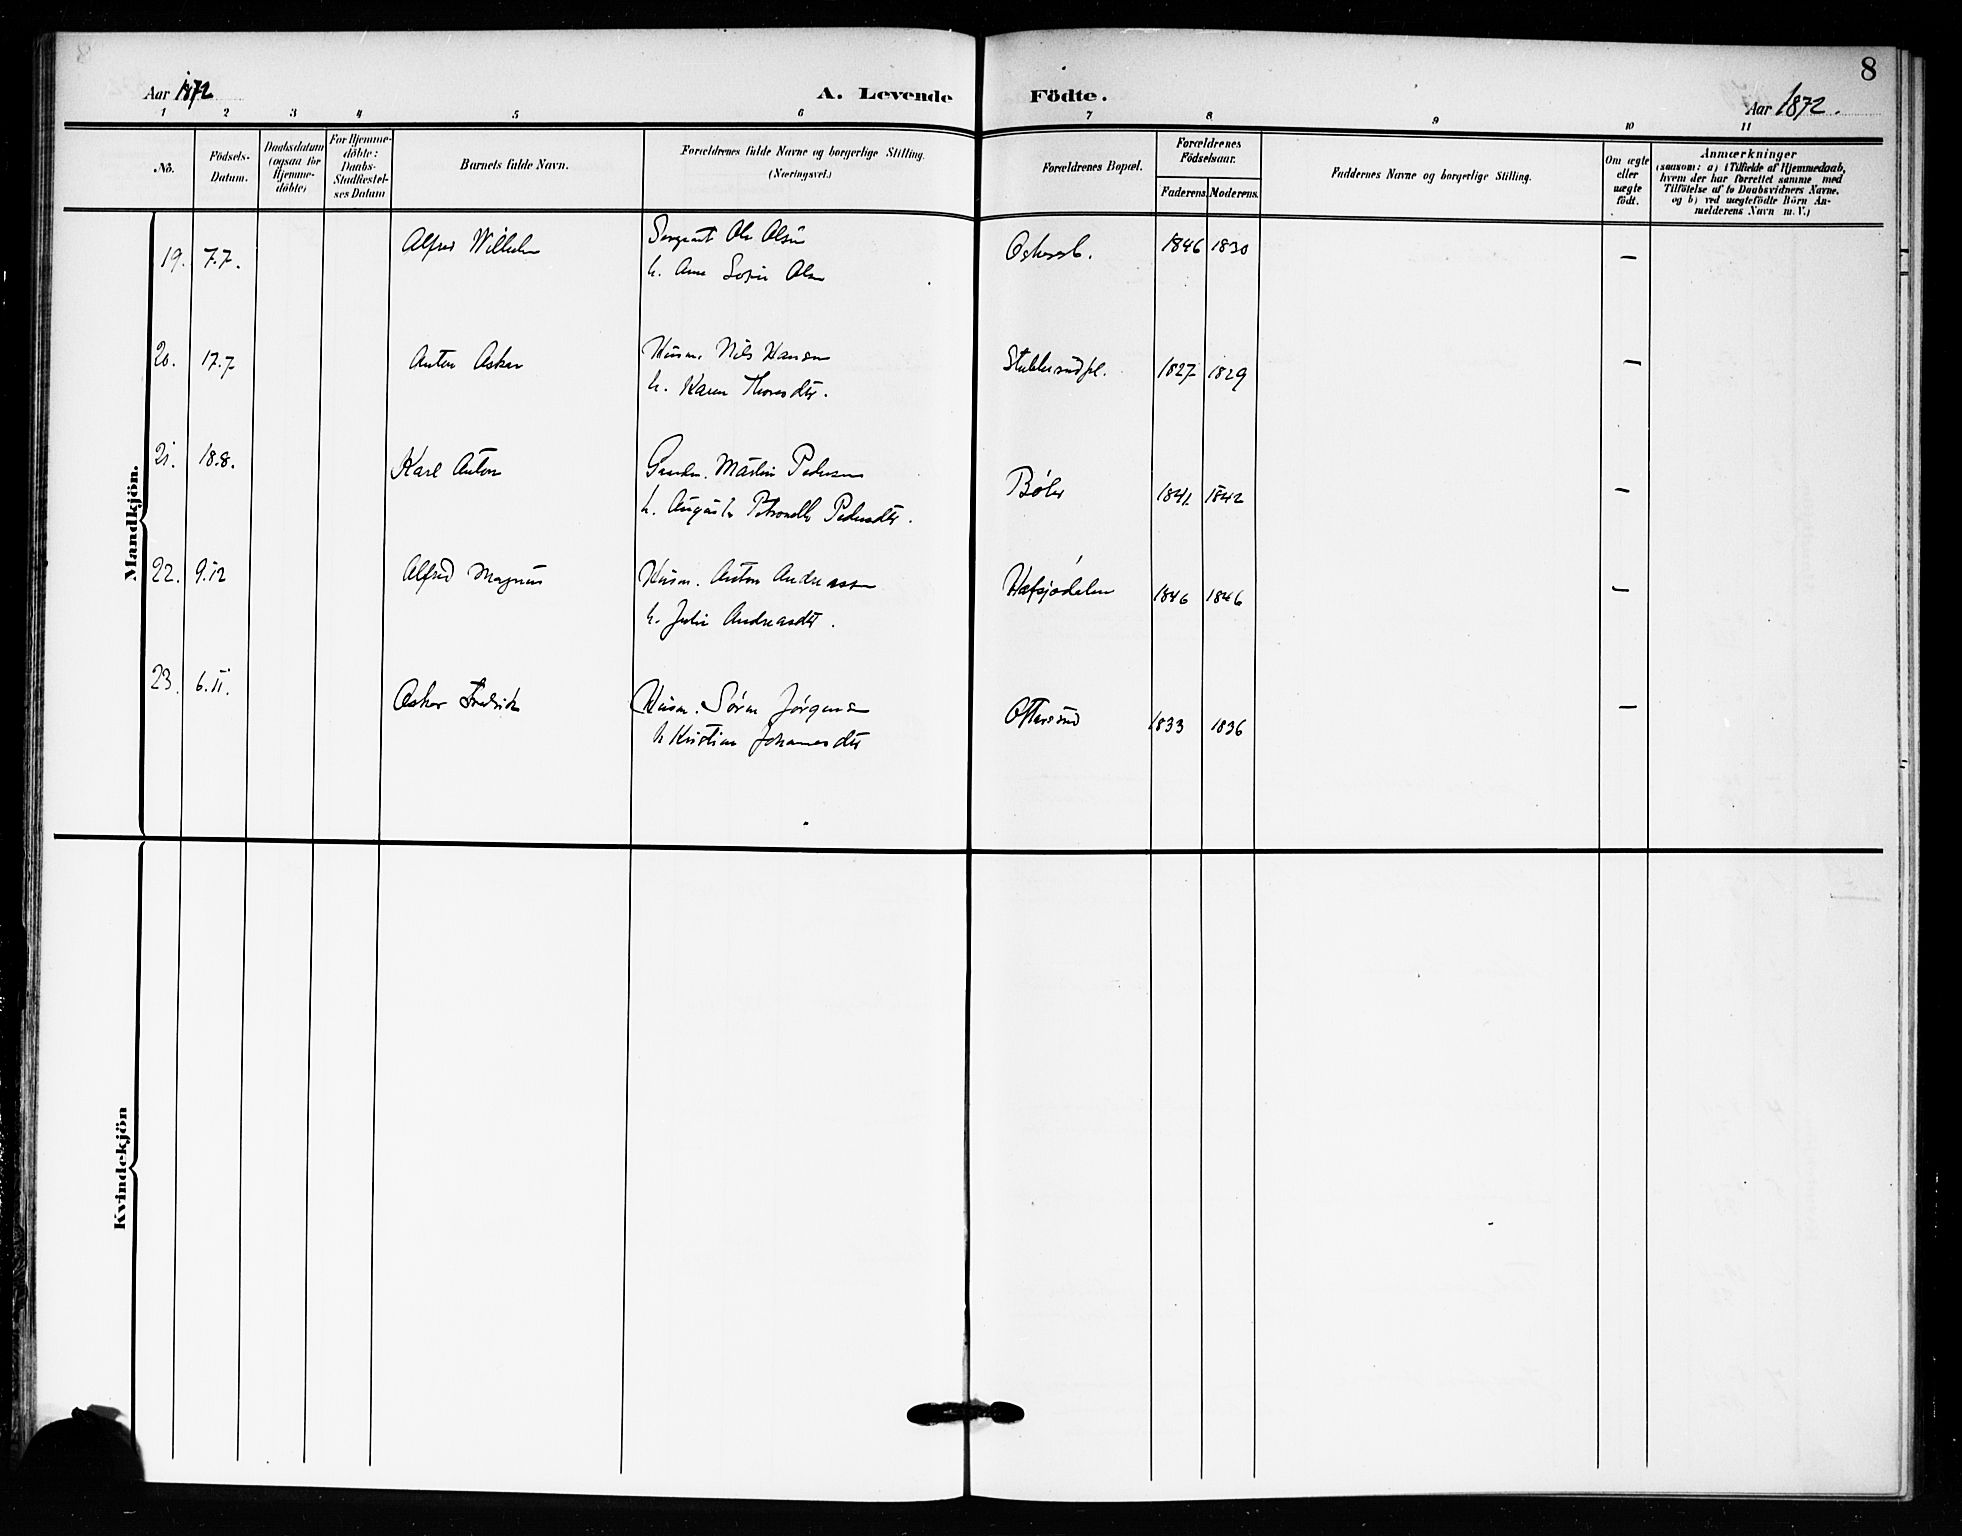 8
Aar 1872
A. Levende Födte.
Aar 1872.
1 2 3 4 5 6 7 8 9 10 11
No.
Födsels-Datum.
Daabsdatum (ogsaa for Hjemme-döbte)
For Hjemme-döbte: Daabs-Stadfæstel-ses Datum
Barnets fulde Navn.
Forældrenes fulde Navne og borgerlige Stilling. (Næringsvei.)
Forældrenes Bopæl.
Forældrenes Födselsaar.
Faderens. Moderens.
Faddernes Navne og borgerlige Stilling.
Om ægte eller uægte födt.
Anmærkninger
(saasom: a) i Tilfælde af Hjemmedaab,
hvem der har forrettet samme med
Tilföielse af to Daabsvidners Navne,
og b) ved uægtefödte Börn An-
melderens Navn m. V.)
Mandkjön.
19. 7.7. Alfred Wilhelm Sergeant Ole Olsen 1846 1830 —
h. Ane Sofie Olsen
20. 17.7 Anton Oskar Husm. Nils Hansen Stubberudpl. 1827 1829 —
h. Karen Thoresdtr.
21. 18.8. Karl Anton Martin Pedersen Bøler 1841 1842 —
h. Augusta Petronelle Pedersdtr.
22. 9.12 Alfred Magnus Husm. Anton Andreassen Hafsjødalen 1846 1846 —
h. Julie Andreasdtr.
23. 6.11. Oskar Fredrik Husm. Søren Jørgensen Ottarsrud 1833 1836 —
h. Kristine Johannesdtr
Kvindekjön